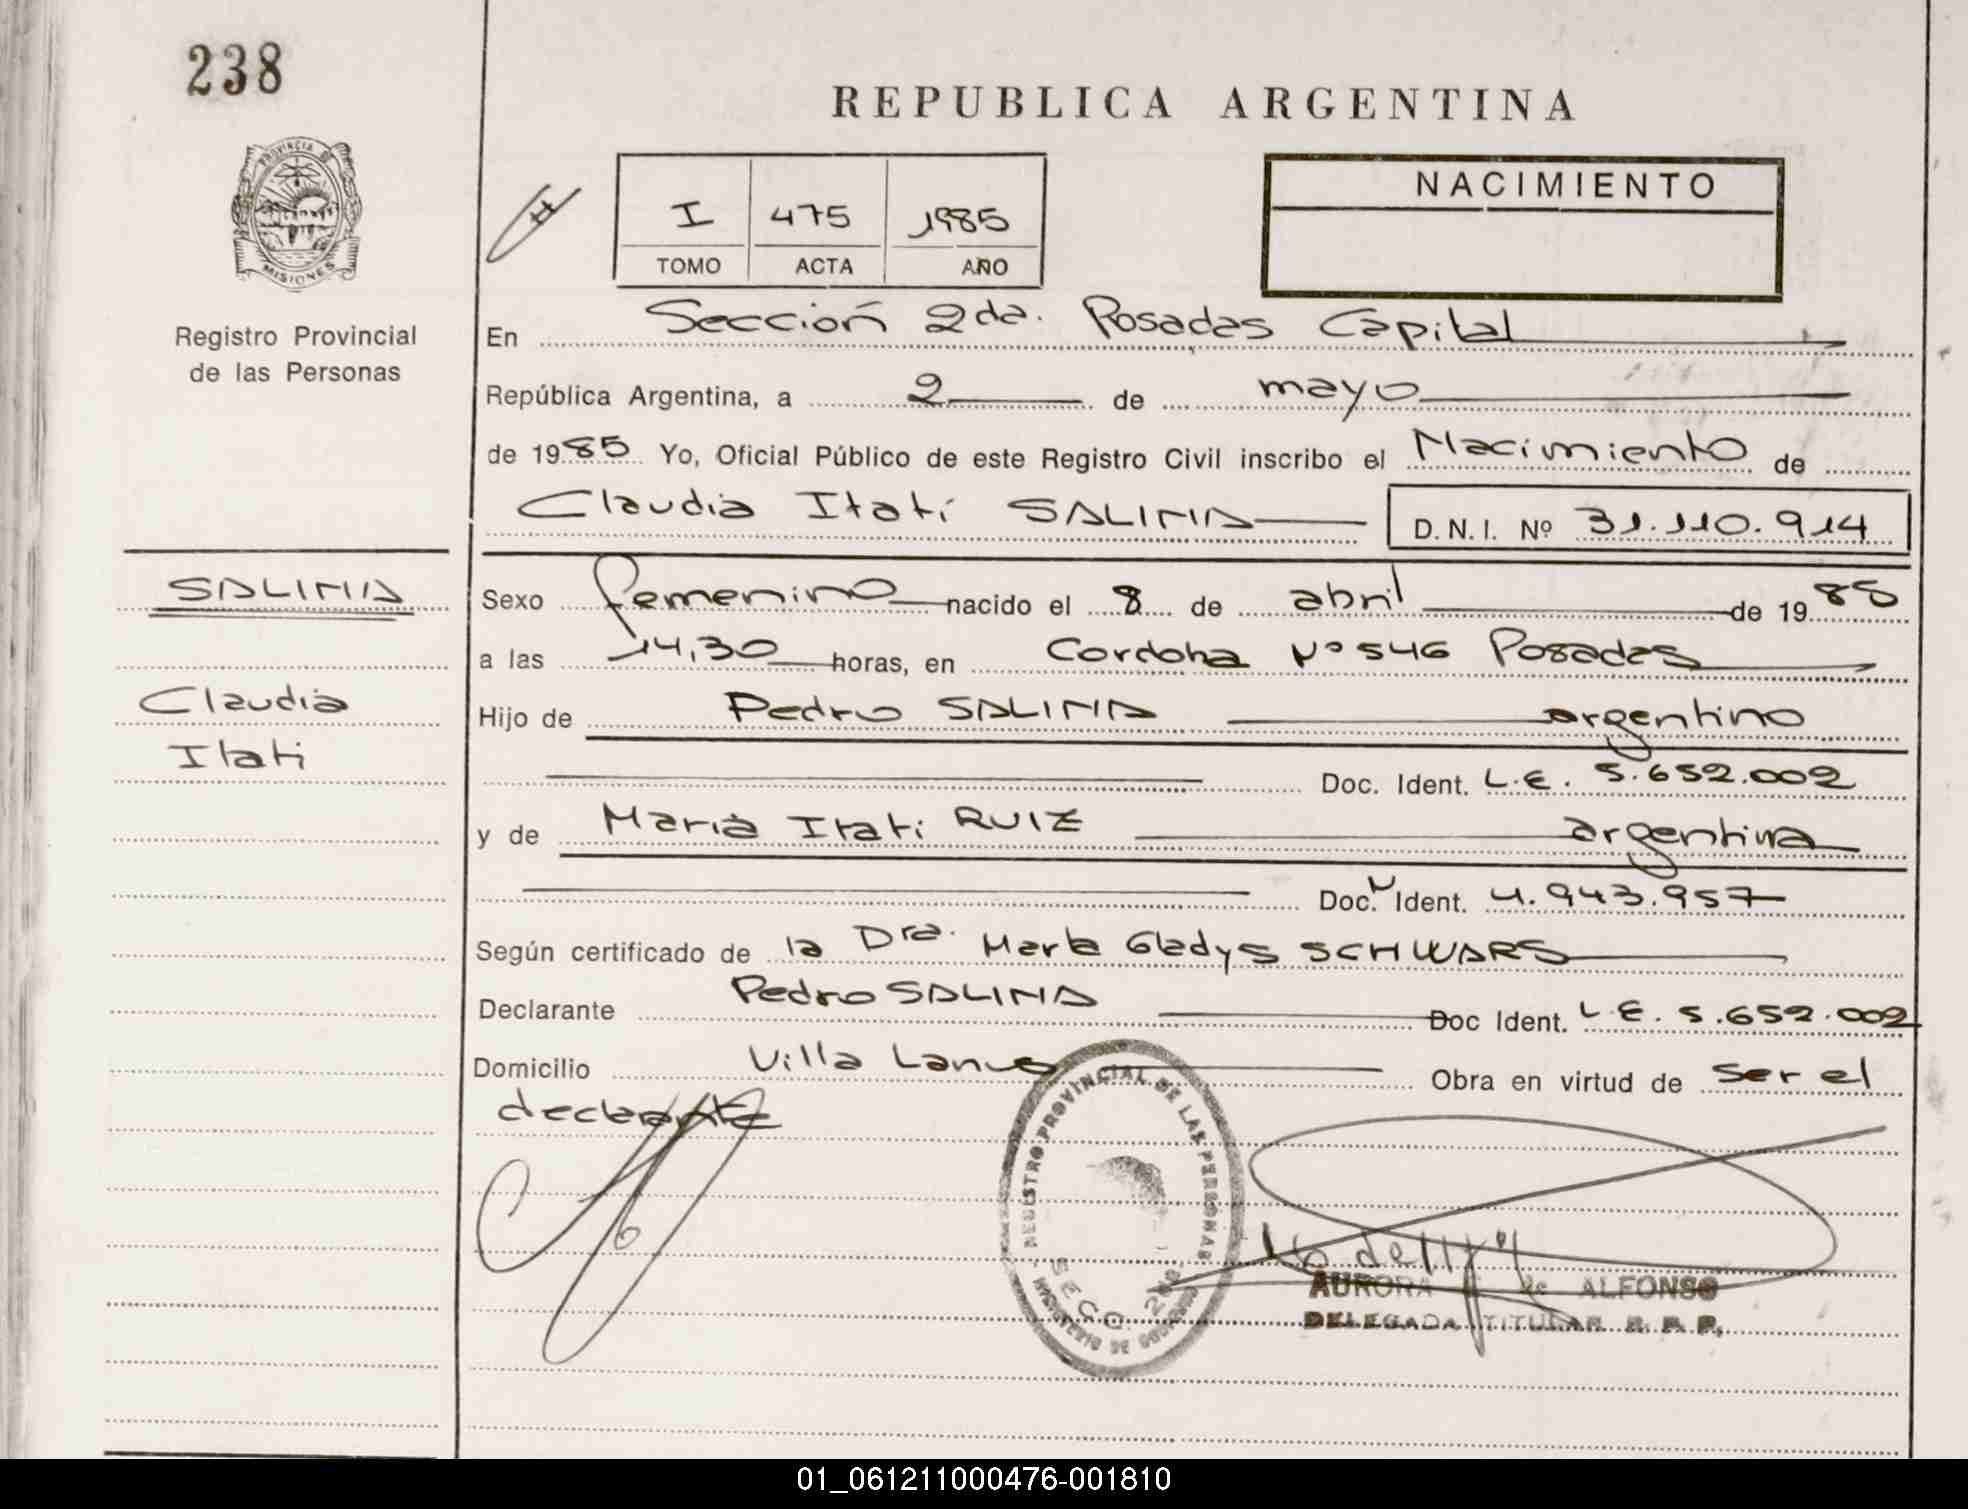 238
REPUBLICA ARGENTINA
PROVINCIA DE
MISIONES
Registro Provincial
de las Personas
I 475 1985
TOMO ACTA AÑO
NACIMIENTO
En Sección 2da. Posadas Capital
República Argentina, a 2 de mayo
de 1985 Yo, Oficial Público de este Registro Civil inscribo el Nacimiento de
Claudia Itatí SALINA D.N.I. Nº 31.110.914
SALINA
Claudia
Itati
Sexo femenino nacido el 8 de abril de 1985
a las 14,30 horas, en Cordoba Nº 546 Posadas
Hijo de Pedro SALINA argentino
Doc. Ident. L.E. 5.652.002
y de Maria Itati RUIZ argentina
Doc. Ident. 4.943.957
Según certificado de la Dra. Marta Gladys SCHWARS
Declarante Pedro SALINA Doc Ident. L.E. 5.652.002
Domicilio Villa Lanus Obra en virtud de ser el
declarante
REGISTRO PROVINCIAL DE LAS PERSONAS
MINISTERIO DE GOBIERNO
SECC. 2da.
AURORA de ALFONSO
DELEGADA TITULAR R. P. P.
01_061211000476-001810